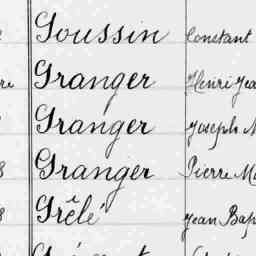 Goussin Constant
Granger Henri Jea
Granger Joseph M
Granger Pierre Ma
Grêlé Jean Bap